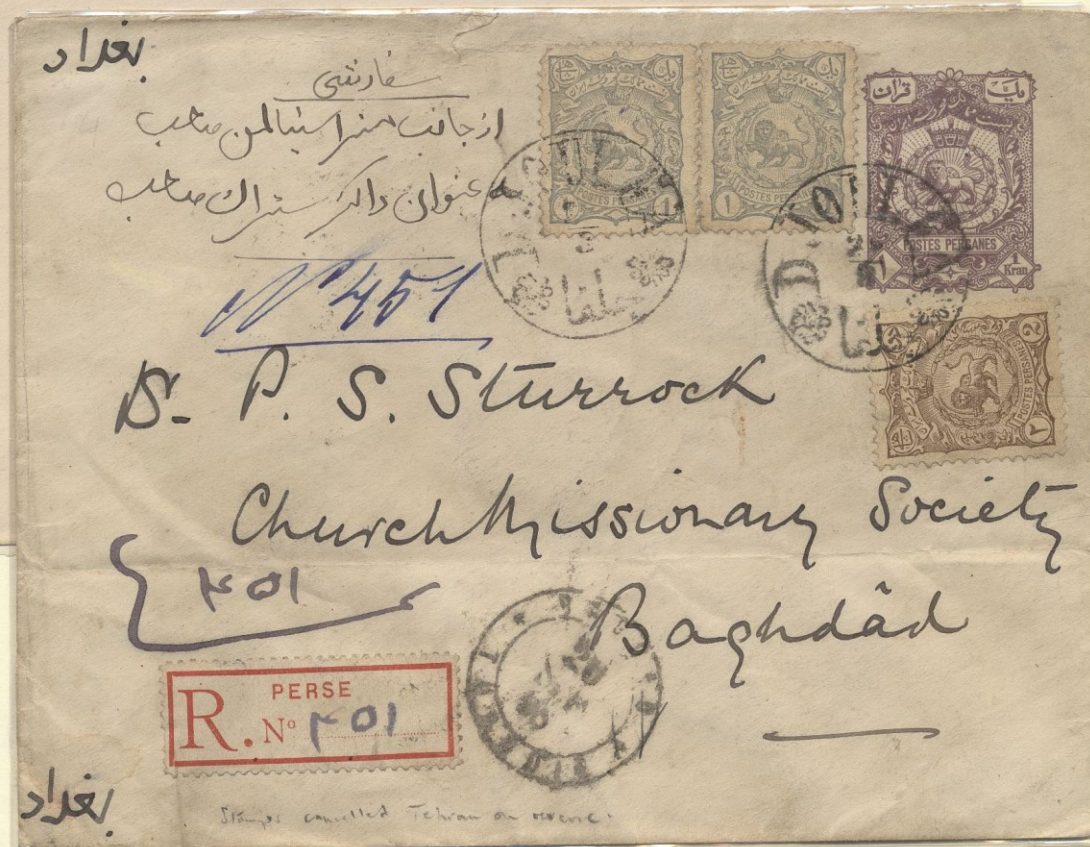 بغداد
سفارشی
از جانب مستر استیالمن صاحب
بعنوان داکتر ستراک صاحب
یک قران
POSTES PERSANES
1 Kran
1
1
POSTES PERSANES
1
1
POSTES PERSANES
2
۲
DJOULFA
جلفا
DJOULFA
جلفا
No 451
Dr. P. S. Sturrock
Church Missionary Society
Baghdâd
۴۵۱
PERSE
R. No ۴۵۱
بغداد
Stamps cancelled Tehran on reverse.